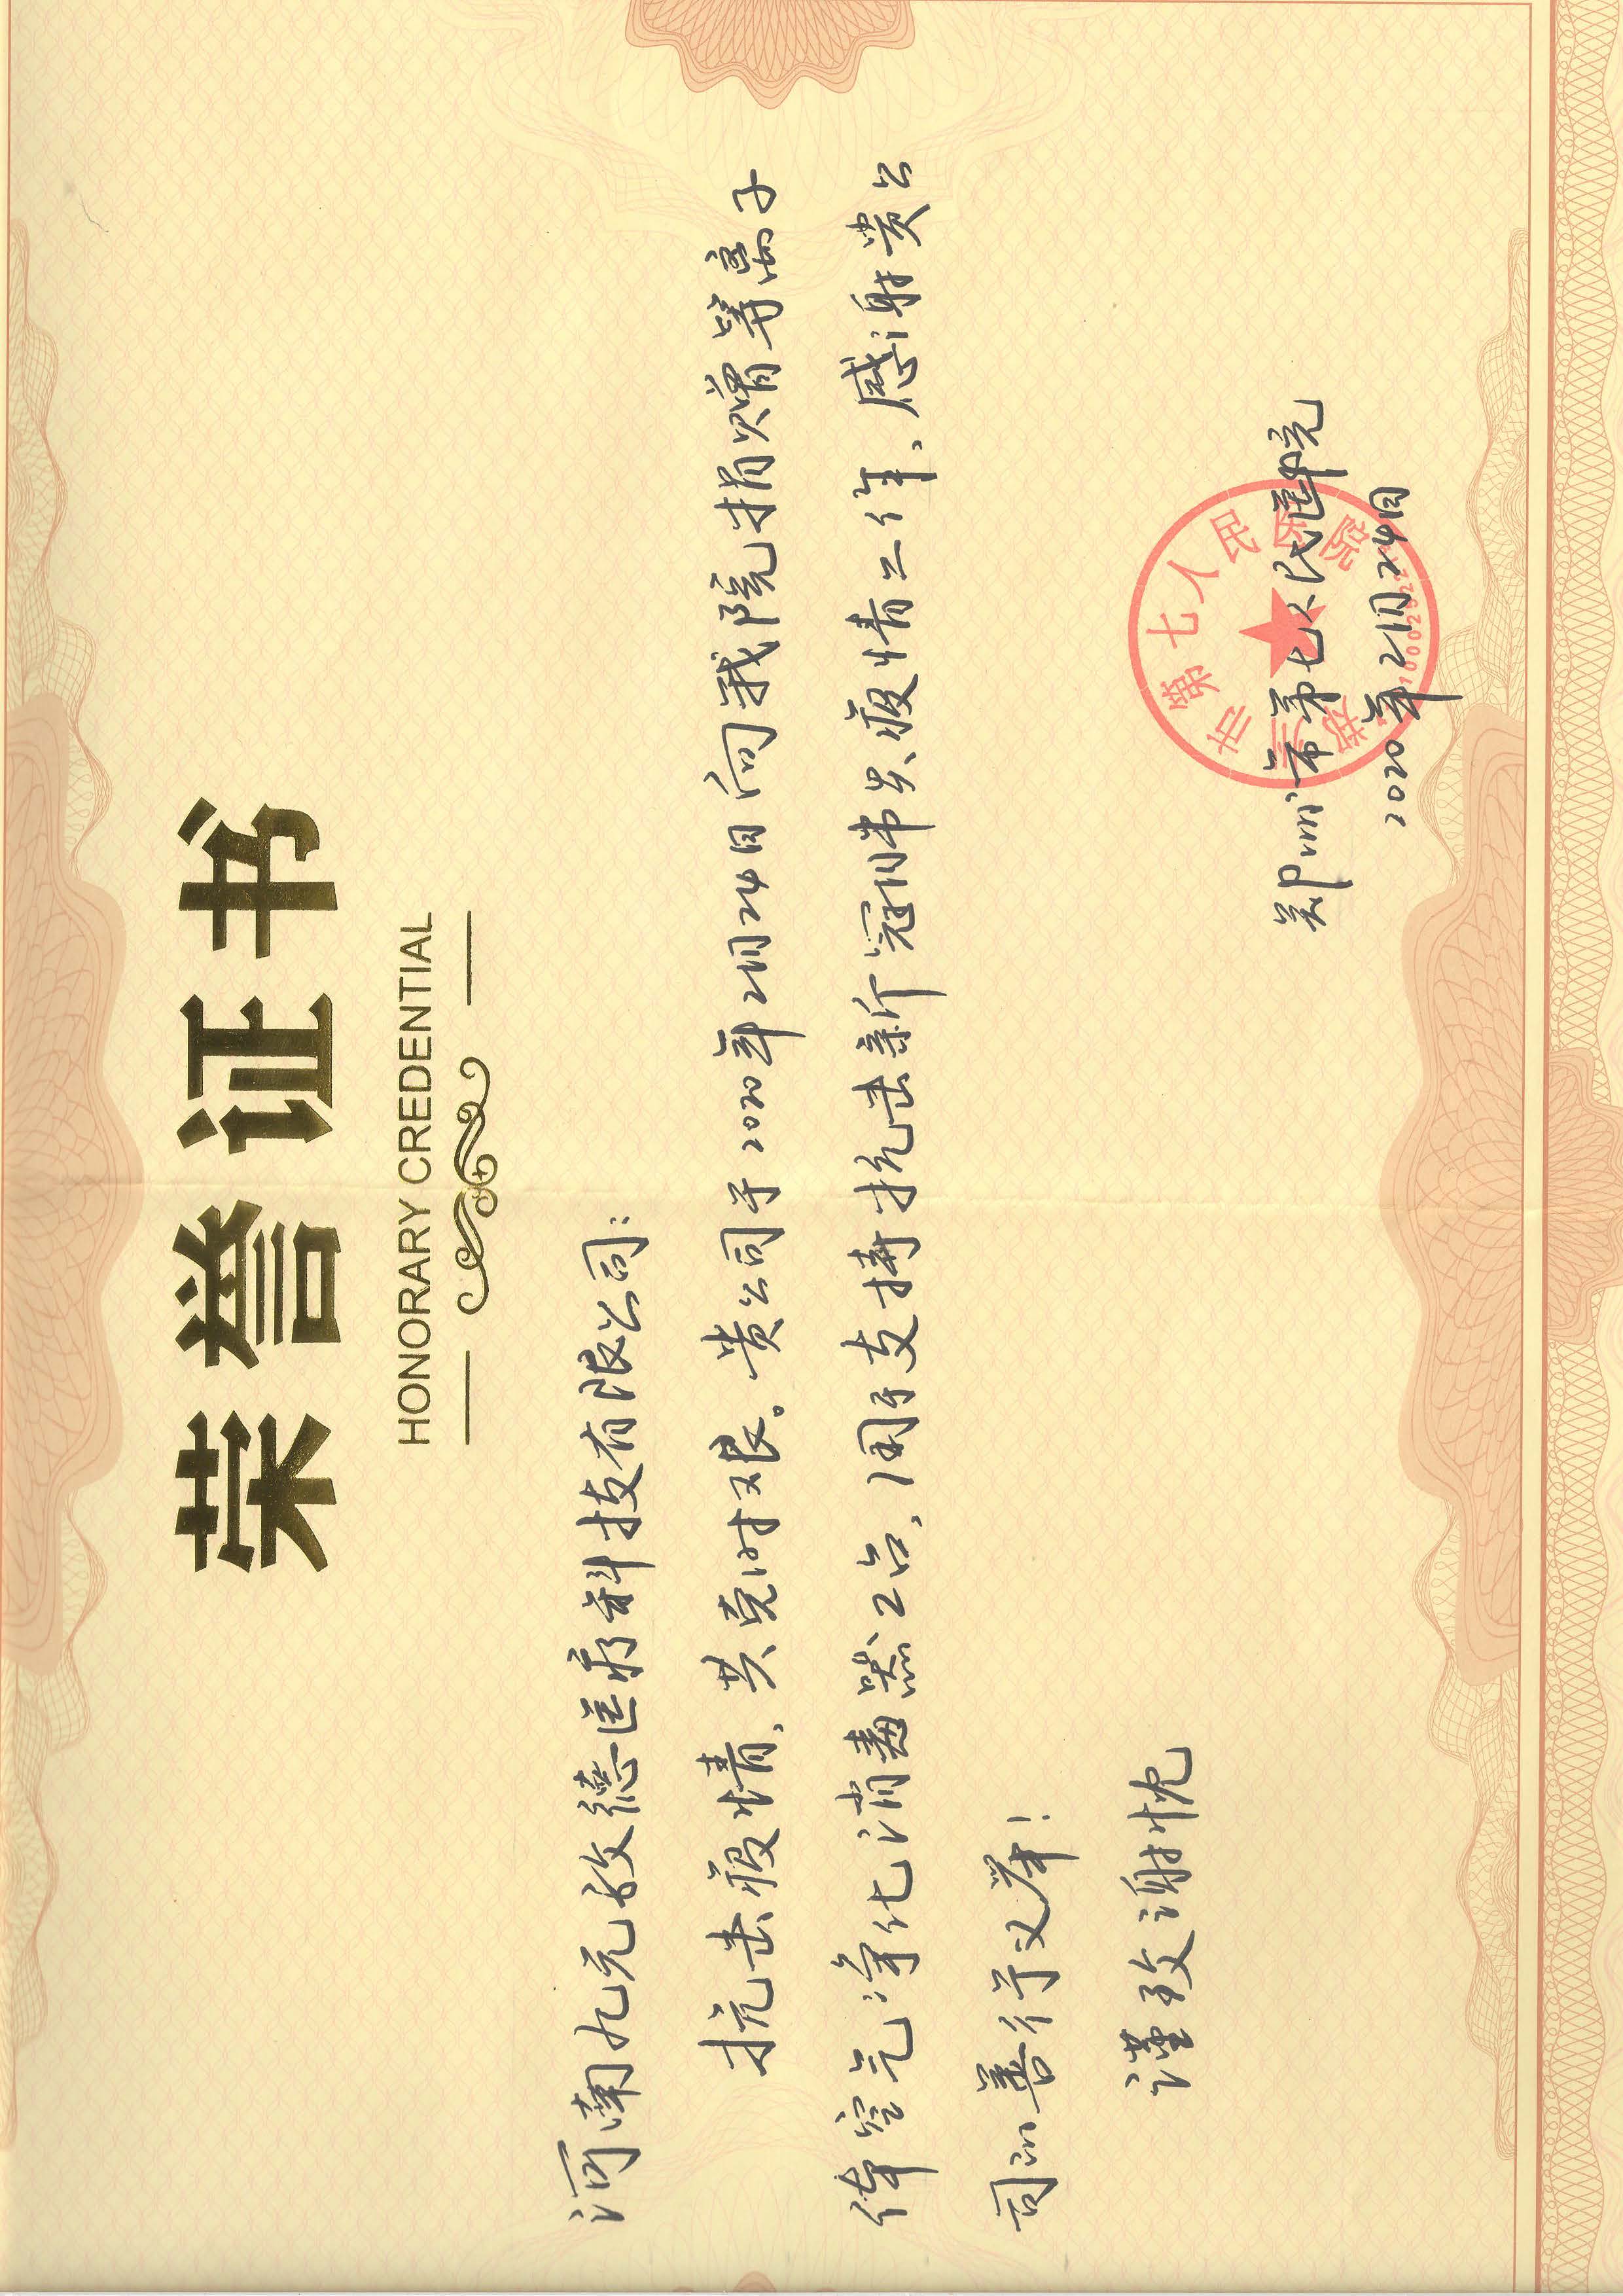 荣誉证书
HONORARY CREDENTIAL
河南九元致德医疗科技有限公司:
抗击疫情、共克时艰。贵公司于2020年2月24日向我院捐赠等离子
体空气净化消毒器2台、用于支持抗击新冠肺炎疫情工作、感谢贵公
司的善行义举!
谨致谢忱
郑州市第七人民医院
2020年2月24日
郑州市第七人民医院